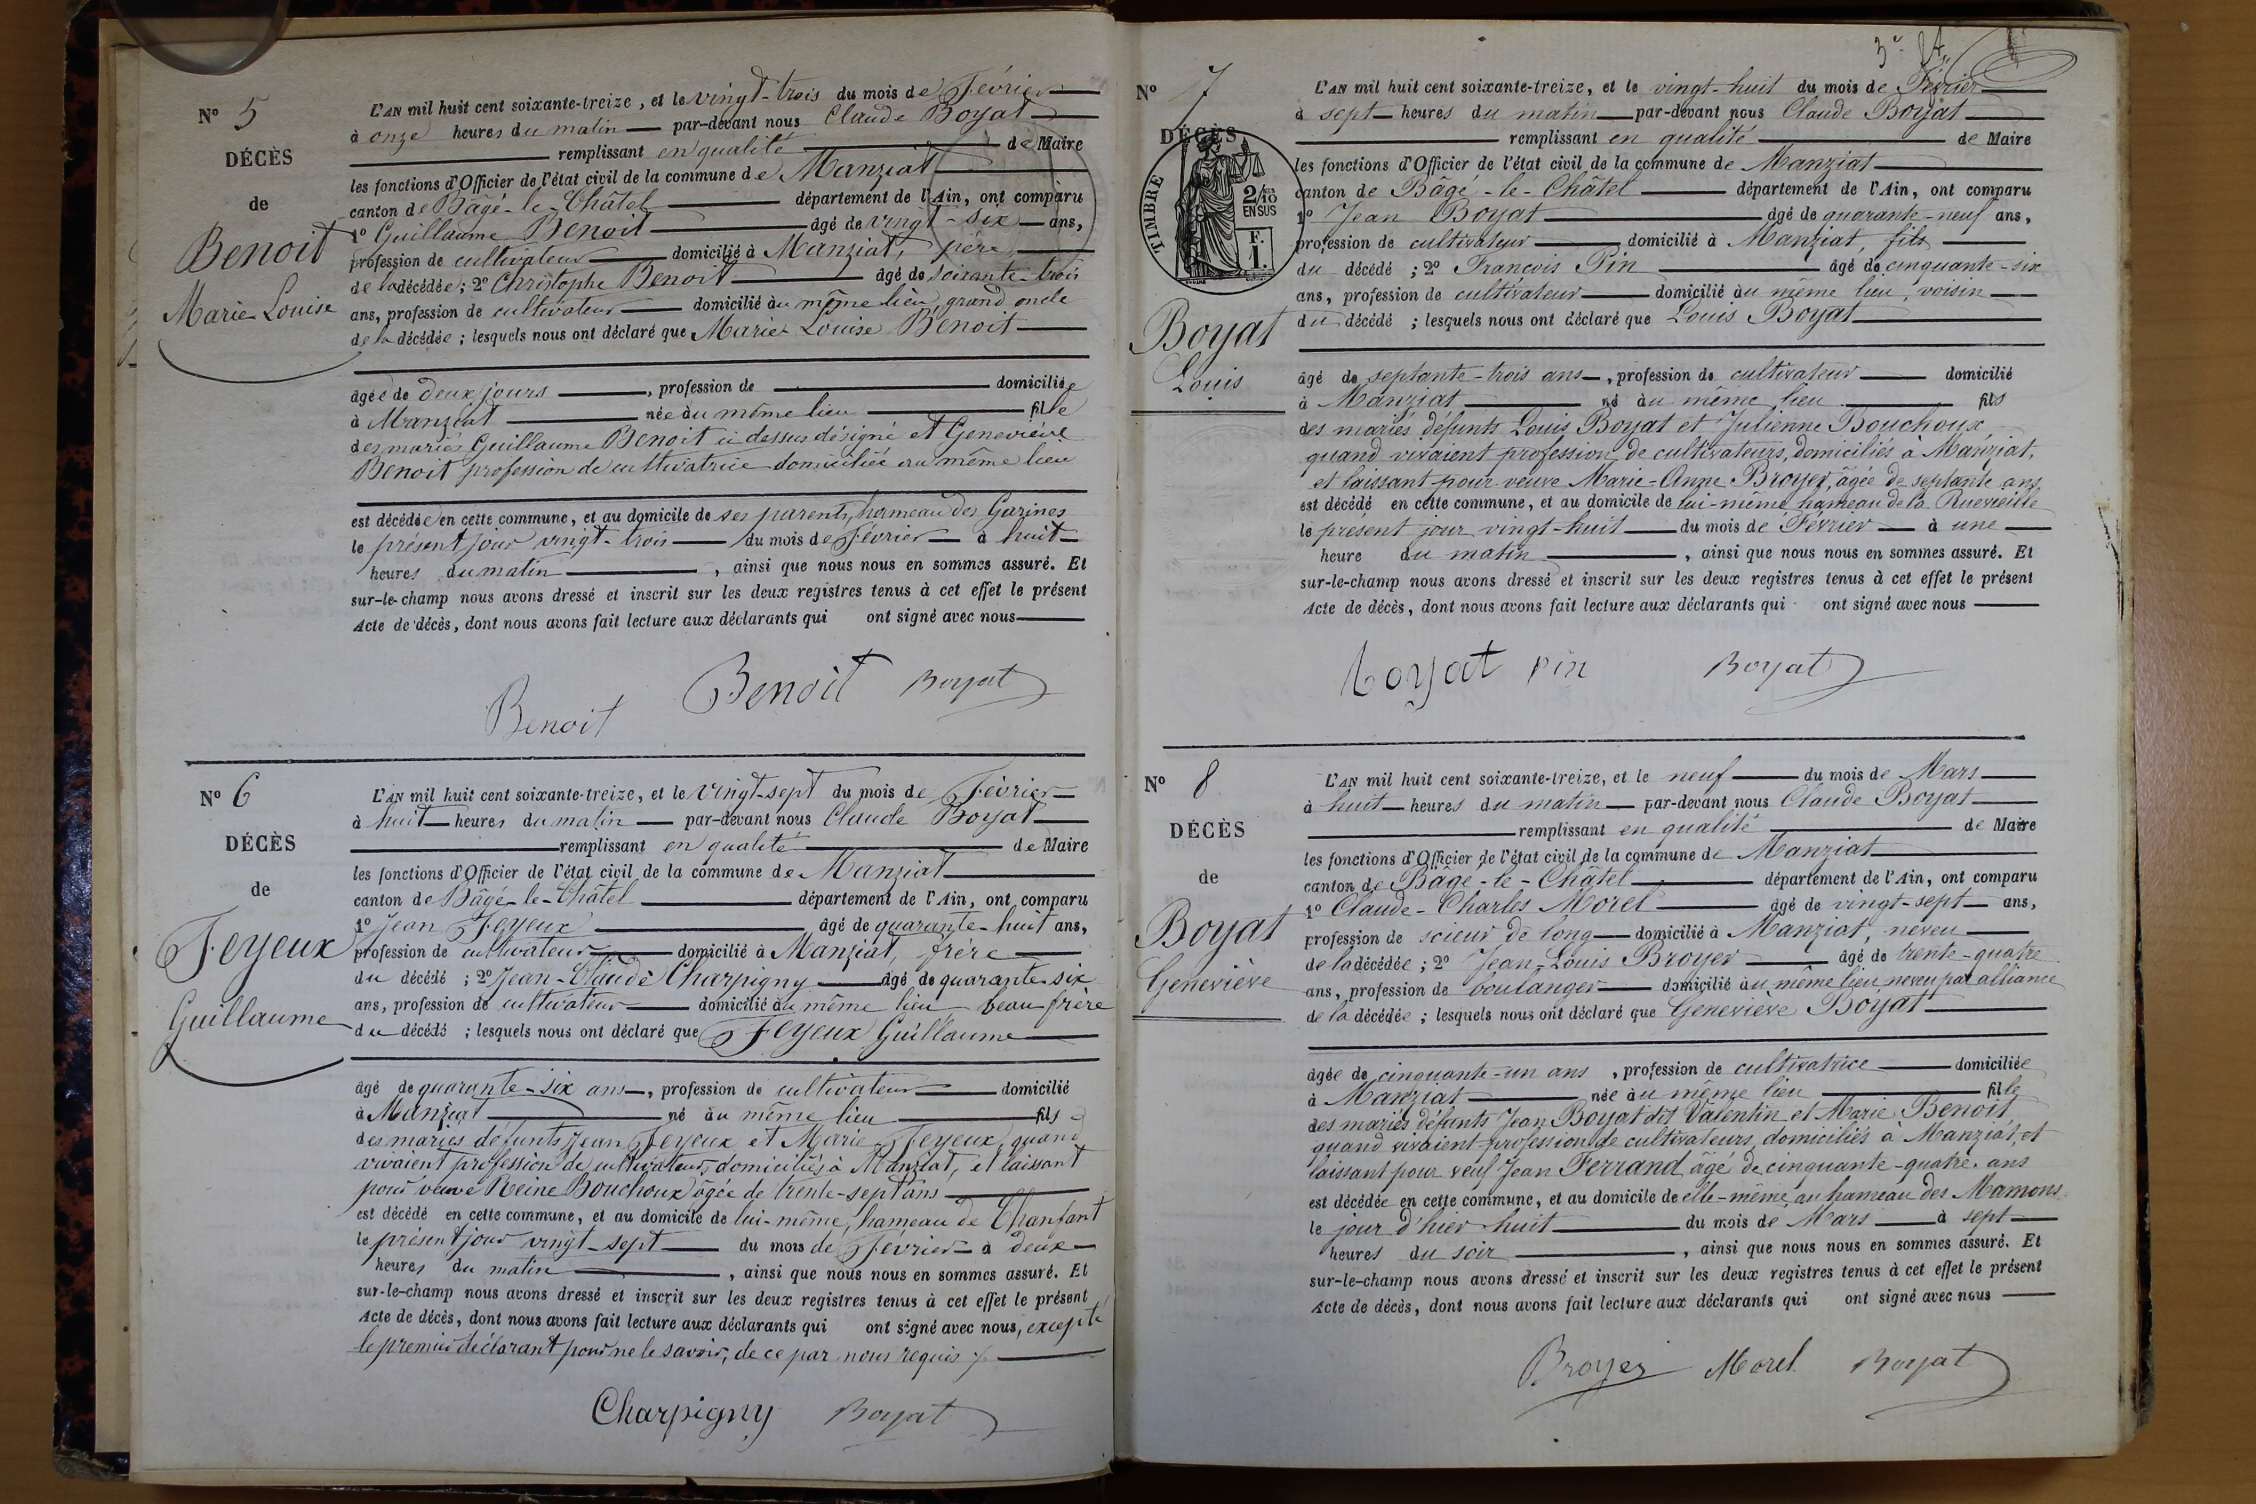 N° 5
DÉCÈS
de
Benoit
Marie Louise
L'AN mil huit cent soixante-treize, et le vingt-trois du mois de Février
à onze heures du matin par-devant nous Claude Boyat
remplissant en qualité de Maire
les fonctions d'Officier de l'état civil de la commune de Manziat
canton de Bâgé-le-Châtel département de l'Ain, ont comparu
1° Guillaume Benoit âgé de vingt-six ans,
profession de cultivateur domicilié à Manziat, père
de la décédée ; 2° Christophe Benoit âgé de soixante-trois
ans, profession de cultivateur domicilié au même lieu, grand oncle
de la décédée ; lesquels nous ont déclaré que Marie Louise Benoit
âgée de deux jours, profession de domiciliée
à Manziat née au même lieu fille
des mariés Guillaume Benoit ci dessus désigné et Geneviève
Benoit profession de cultivatrice domiciliée au même lieu
est décédée en cette commune, et au domicile de ses parents, hameau des Garines
le présent jour vingt-trois du mois de Février à huit
heures du matin, ainsi que nous nous en sommes assuré. Et
sur-le-champ nous avons dressé et inscrit sur les deux registres tenus à cet effet le présent
Acte de décès, dont nous avons fait lecture aux déclarants qui ont signé avec nous
Benoit Benoit Boyat
N° 6
DÉCÈS
de
Feyeux
Guillaume
L'AN mil huit cent soixante-treize, et le vingt-sept du mois de Février
à huit heures du matin par-devant nous Claude Boyat
remplissant en qualité de Maire
les fonctions d'Officier de l'état civil de la commune de Manziat
canton de Bâgé-le-Châtel département de l'Ain, ont comparu
1° Jean Feyeux âgé de quarante-huit ans,
profession de cultivateur domicilié à Manziat, frère
du décédé ; 2° Jean-Claude Charpigny âgé de quarante-six
ans, profession de cultivateur domicilié au même lieu beau frère
du décédé ; lesquels nous ont déclaré que Feyeux Guillaume
âgé de quarante-six ans, profession de cultivateur domicilié
à Manziat né au même lieu fils
des mariés défunts Jean Feyeux et Marie Feyeux, quand
vivaient profession de cultivateurs, domiciliés à Manziat, et laissant
pour veuve Reine Bouchoux âgée de trente-sept ans
est décédé en cette commune, et au domicile de lui-même, hameau de Chanfant
le présent jour vingt-sept du mois de Février à deux
heures du matin, ainsi que nous nous en sommes assuré. Et
sur-le-champ nous avons dressé et inscrit sur les deux registres tenus à cet effet le présent
Acte de décès, dont nous avons fait lecture aux déclarants qui ont signé avec nous, excepté
le premier déclarant pour ne le savoir, de ce par nous requis
Charpigny Boyat
3e
N° 7
DÉCÈS
TIMBRE
2/10
EN SUS
F.
1.
Boyat
Louis
L'AN mil huit cent soixante-treize, et le vingt-huit du mois de Février
à sept heures du matin par-devant nous Claude Boyat
remplissant en qualité de Maire
les fonctions d'Officier de l'état civil de la commune de Manziat
canton de Bâgé-le-Châtel département de l'Ain, ont comparu
1° Jean Boyat âgé de quarante-neuf ans,
profession de cultivateur domicilié à Manziat, fils
du décédé ; 2° François Pin âgé de cinquante-six
ans, profession de cultivateur domicilié au même lieu, voisin
du décédé ; lesquels nous ont déclaré que Louis Boyat
âgé de septante-trois ans, profession de cultivateur domicilié
à Manziat né au même lieu fils
des mariés défunts Louis Boyat et Julienne Bouchoux,
quand vivaient profession de cultivateurs, domiciliés à Manziat,
et laissant pour veuve Marie-Anne Broyer, âgée de septante ans
est décédé en cette commune, et au domicile de lui-même, hameau de la Ruevieille
le présent jour vingt-huit du mois de Février à une
heure du matin, ainsi que nous nous en sommes assuré. Et
sur-le-champ nous avons dressé et inscrit sur les deux registres tenus à cet effet le présent
Acte de décès, dont nous avons fait lecture aux déclarants qui ont signé avec nous
Boyat pin Boyat
N° 8
DÉCÈS
de
Boyat
Geneviève
L'AN mil huit cent soixante-treize, et le neuf du mois de Mars
à huit heures du matin par-devant nous Claude Boyat
remplissant en qualité de Maire
les fonctions d'Officier de l'état civil de la commune de Manziat
canton de Bâgé-le-Châtel département de l'Ain, ont comparu
1° Claude-Charles Morel âgé de vingt-sept ans,
profession de scieur de long domicilié à Manziat, neveu
de la décédée ; 2° Jean-Louis Broyer âgé de trente-quatre
ans, profession de boulanger domicilié au même lieu neveu par alliance
de la décédée ; lesquels nous ont déclaré que Geneviève Boyat
âgée de cinquante-un ans, profession de cultivatrice domiciliée
à Manziat née au même lieu fille
des mariés défunts Jean Boyat dit Valentin et Marie Benoit
quand vivaient profession de cultivateurs, domiciliés à Manziat, et
laissant pour veuf Jean Ferrand, âgé de cinquante-quatre ans
est décédée en cette commune, et au domicile de elle-même au hameau des Mamons
le jour d'hier huit du mois de Mars à sept
heures du soir, ainsi que nous nous en sommes assuré. Et
sur-le-champ nous avons dressé et inscrit sur les deux registres tenus à cet effet le présent
Acte de décès, dont nous avons fait lecture aux déclarants qui ont signé avec nous
Broyer Morel Boyat